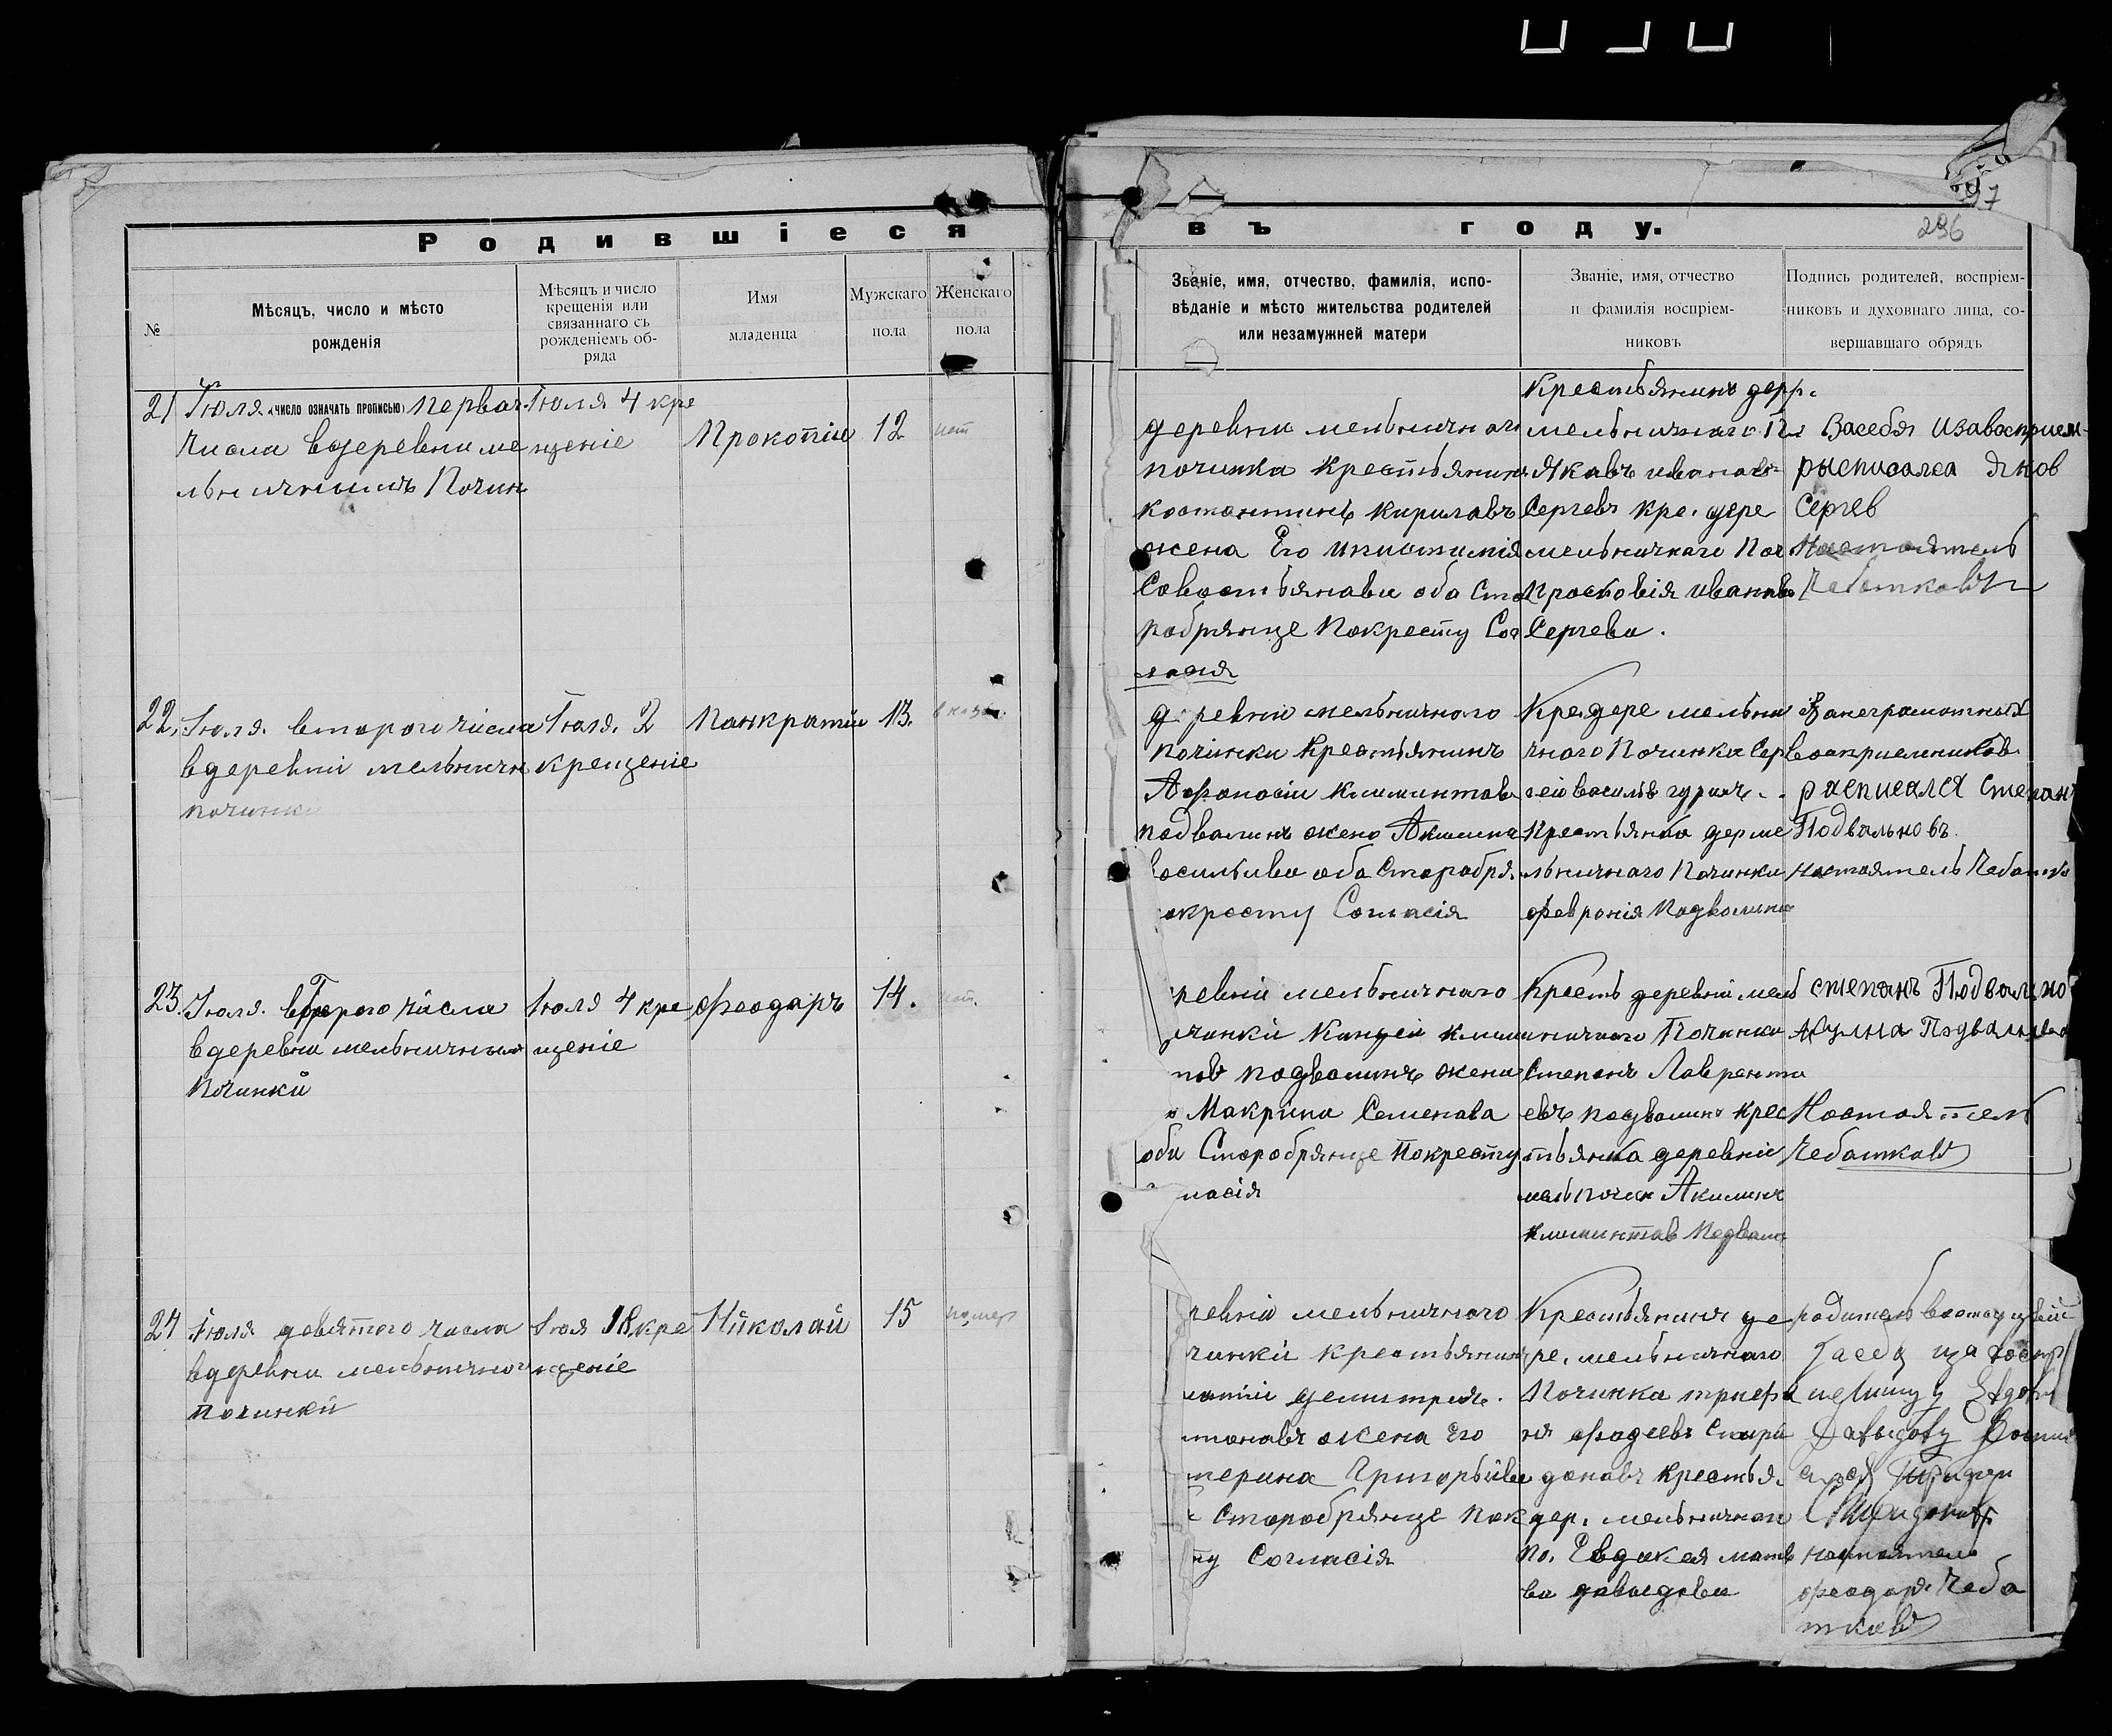 Родившіеся
въ году.
97
296
№
Мѣсяцъ, число и мѣсто
рожденія
Мѣсяцъ и число
крещенія или
связаннаго съ
рожденіемъ об-
ряда
Имя
младенца
Мужскаго
пола
Женскаго
пола
Званіе, имя, отчество, фамилія, испо-
вѣданіе и мѣсто жительства родителей
или незамужней матери
Званіе, имя, отчество
и фамилія воспріем-
никовъ
Подпись родителей, воспріем-
никовъ и духовнаго лица, со-
вершавшаго обрядъ
21
Іюля (число означать прописью) перваг
числа вдеревни ме
льничнымъ Почин
Іюля 4 кре
щеніе
Прокопіи
12
нет
деревни мельничнаги
починка Крестьянинъ
костантинъ кирилавъ
жена Его
Савостьянави оба Ста
робрянце Покресту Сог
ласия
Крестьянинъ дер.
мельничнаго По
Якавъ ивановъ
Сергевъ кре. дере
мельничнаго Поч
Просковія иванав
Сергева.
Засебя изавосприем-
рысписался Яков
Сергев
Настоятель
Чебатковъ
22.
Іюля. второго числа
вдеревни мельничн
починки
Іюля. 2
крещеніе
Панкратіи
13.
деревни мельничного
починки Крестьянинъ
Афонасіи климинтов
подвалинъ жено Акилина
Василива оба Старобря.
окресту Согласія
Кре. дере мельни
чного Починка Сер
геи василів гурич.
Крестьянка дер ме
льничнаго Починки
февронія Подволина
Занеграмотных
восприемников
расписался Степан
Подвальновъ.
Настоятель Чебатков
23.
Іюля. второго числа
вдеревни мельничным
Починки
Іюля 4 кре
щеніе
Феодаръ
14.
нет.
ревни мельничнаго
чинки
подвалинъ жена
Макрина Семенова
оби Старобрянце Покресту
ласія
Кресть деревни мель
ничнаго Починки
Степанъ Лаврентi
евъ подвалинъ крес
тьянка деревни
мель почин Акилина
климинтов Подвали
степанъ Подвално
Акулна Подвалнова
Настоятель
Чебатковъ
24
Іюля девятого числа
вдеревни мельнично
Починки
Іюля 18 кре
щеніе
Николай
15
помер
ревни мельничного
чинки крестьянин
демитрея.
тонавъ жена Его
терина Григорьива
Старобрянце пок
ту Согласія
Крестьянинъ де
ре. мельничнаго
Починка трифа
нъ фадеевъ Спири
донавъ крестья.
дер. мельничнаг
по. Евдакея матв
ва давыдова
родитель
Засебя иза воспр
Евдок
Давыдову
Спиридонов
настоятель
феодаръ Чеба
тковъ